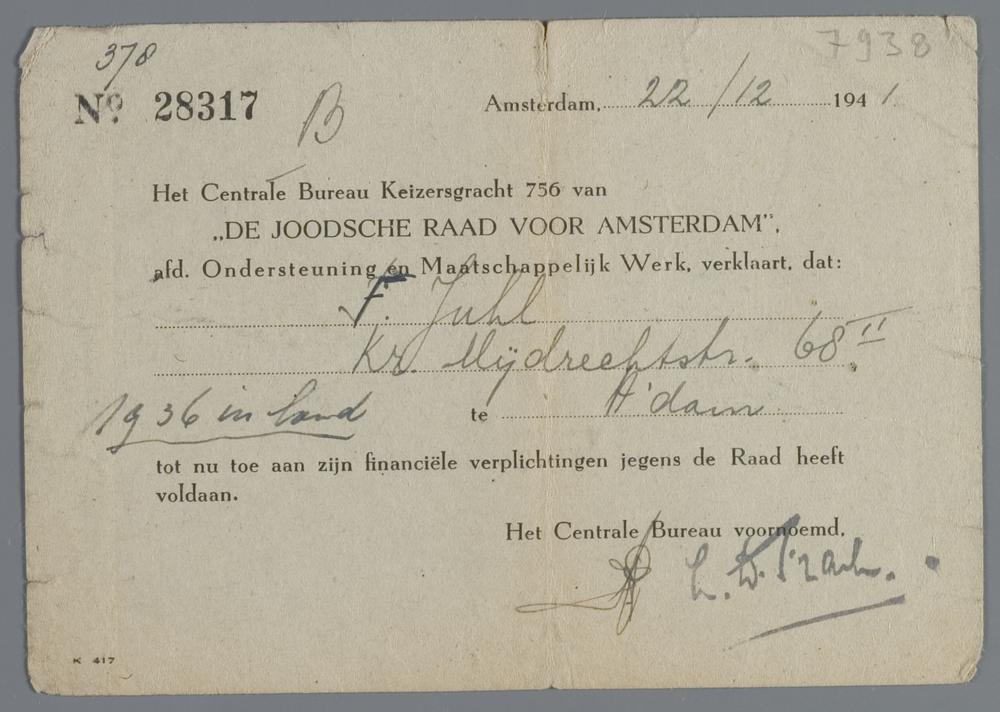 378
7938
Nº 28317 B Amsterdam, 22/12 1941
Het Centrale Bureau Keizersgracht 756 van
„DE JOODSCHE RAAD VOOR AMSTERDAM”,
afd. Ondersteuning en Maatschappelijk Werk, verklaart, dat:
F. Juhl
Kr. Mijdrechtstr. 68 II
1936 in land te A'dam
tot nu toe aan zijn financiële verplichtingen jegens de Raad heeft
voldaan.
Het Centrale Bureau voornoemd,
K 417